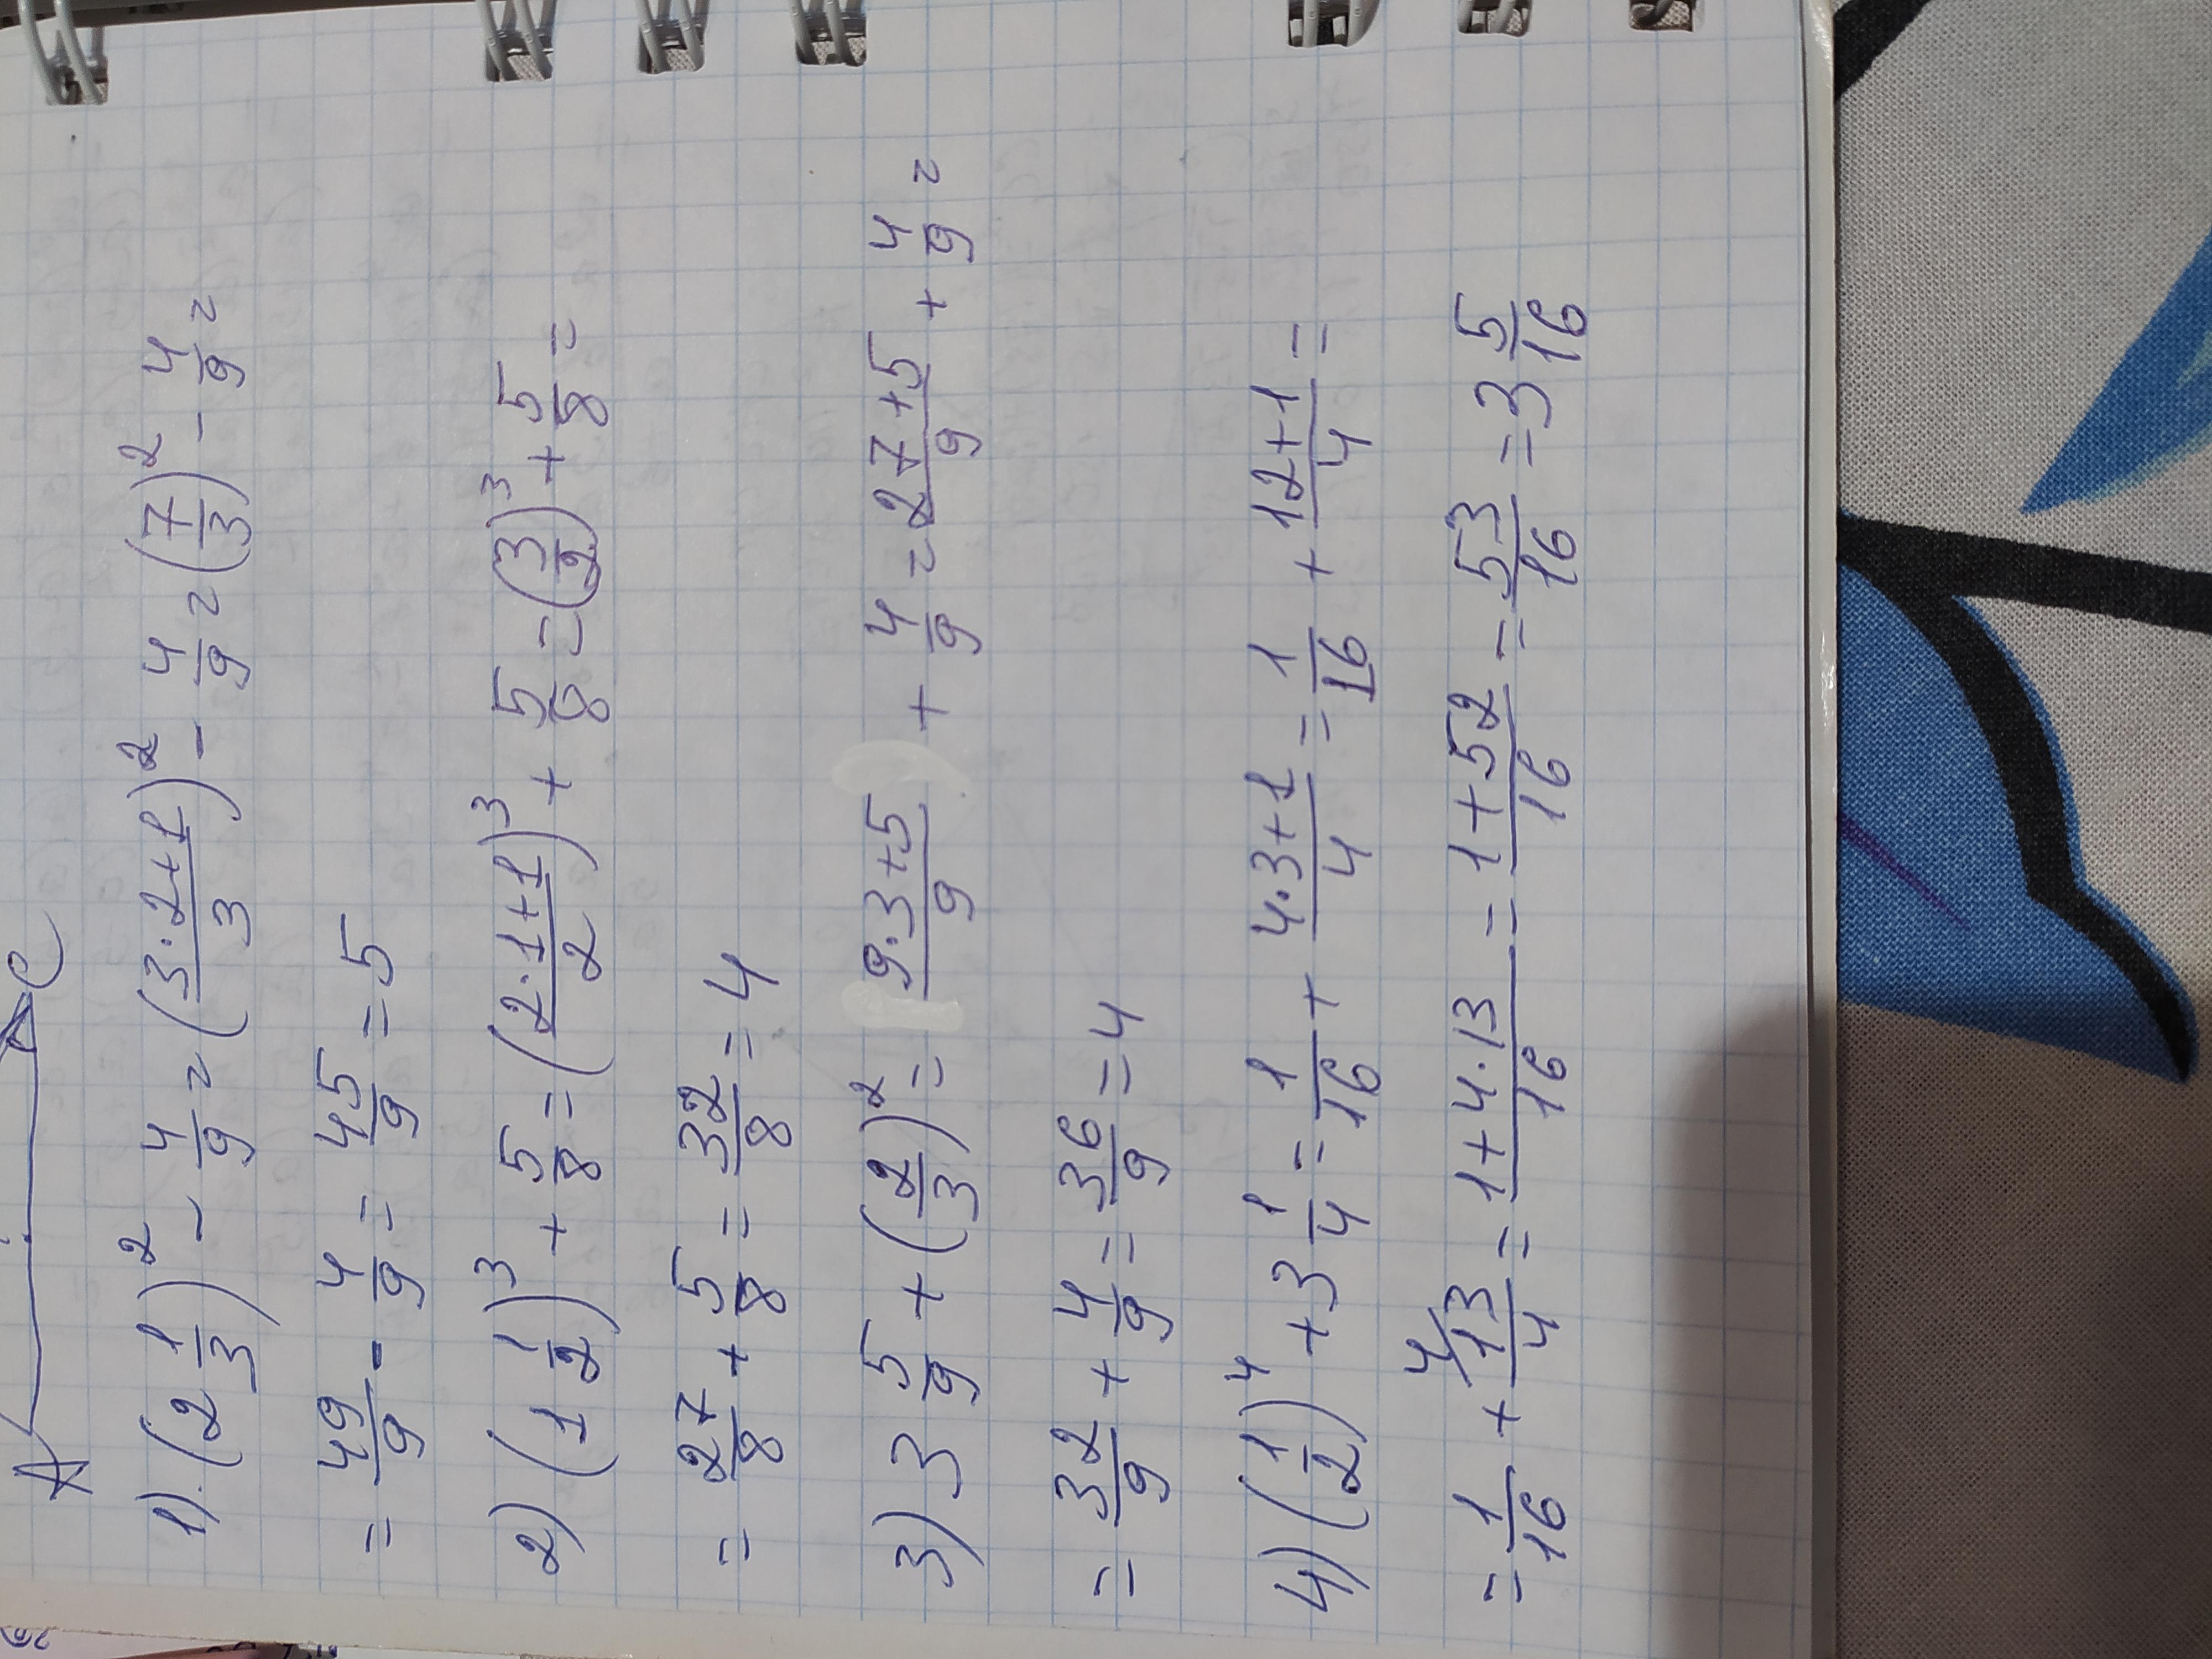 A C
1). (2 1/3)² - 4/9 = ((3·2+1)/3)² - 4/9 = (7/3)² - 4/9 =
= 49/9 - 4/9 = 45/9 = 5
2) (1 1/2)³ + 5/8 = ((2·1+1)/2)³ + 5/8 = (3/2)³ + 5/8 =
= 27/8 + 5/8 = 32/8 = 4
3) 3 5/9 + (2/3)² = (9·3+5)/9 + 4/9 = (27+5)/9 + 4/9 =
= 32/9 + 4/9 = 36/9 = 4
4) (1/2)⁴ + 3 1/4 = 1/16 + (4·3+1)/4 = 1/16 + (12+1)/4 =
= 1/16 + ⁴⁄13/4 = (1+4·13)/16 = (1+52)/16 = 53/16 = 3 5/16